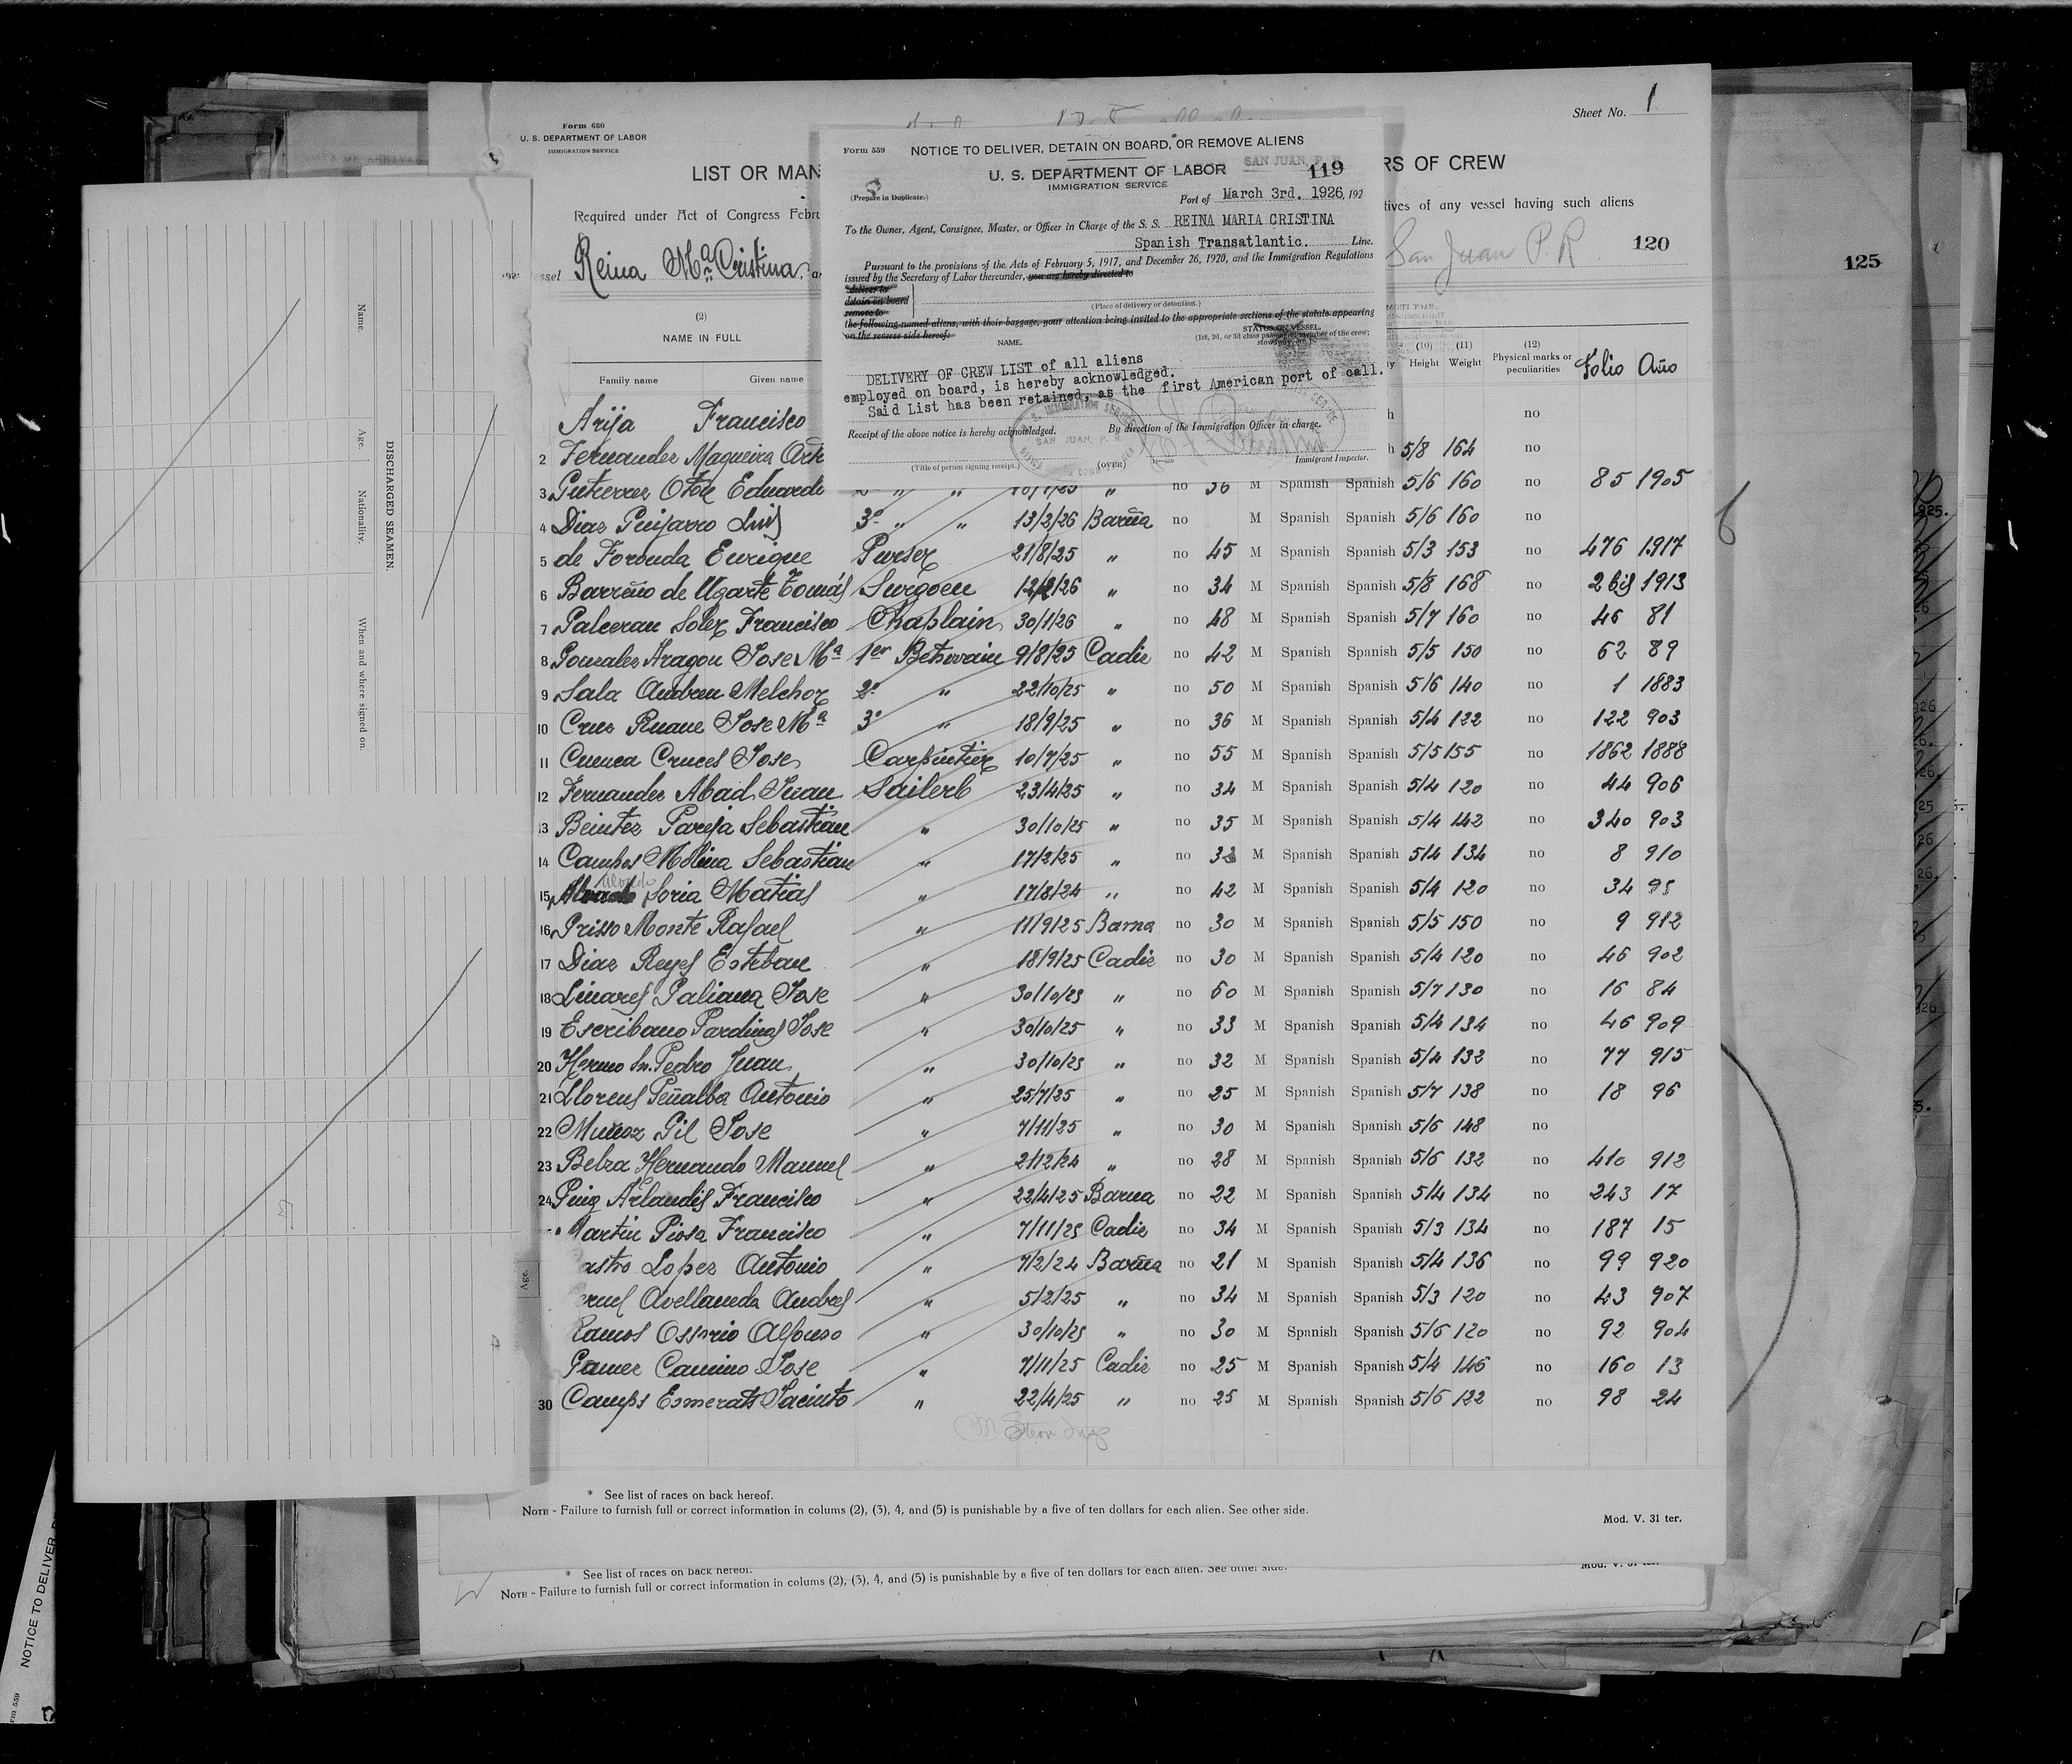 Sheet No. 1
Form 680
U. S. DEPARTMENT OF LABOR
IMMIGRATION SERVICE
LIST OR MAN
RS OF CREW
Required under Act of Congress Febru
tives of any vessel having such aliens
ssel Reina Mª Cristina, a
San Juan P. R
120
125
Form 559
NOTICE TO DELIVER, DETAIN ON BOARD, OR REMOVE ALIENS
U. S. DEPARTMENT OF LABOR
IMMIGRATION SERVICE
SAN JUAN, P. R.
119
(Prepare in Duplicate.)
Port of March 3rd. 1926, 192
To the Owner, Agent, Consignee, Master, or Officer in Charge of the S. S. REINA MARIA CRISTINA
Spanish Transatlantic. Line.
Pursuant to the provisions of the Acts of February 5, 1917, and December 26, 1920, and the Immigration Regulations
issued by the Secretary of Labor thereunder, you are hereby directed to
deliver to
detain on board
remove to
(Place of delivery or detention.)
the following-named aliens, with their baggage, your attention being invited to the appropriate sections of the statute appearing
on the reverse side hereof:
NAME.
STATUS ON VESSEL.
(1st, 2d, or 3d class passenger, member of the crew;
DELIVERY OF CREW LIST of all aliens
employed on board, is hereby acknowledged.
Said List has been retained, as the first American port of call.
Receipt of the above notice is hereby acknowledged.
By direction of the Immigration Officer in charge.
SAN JUAN, P. R.
(Title of person signing receipt.)
(OVER)
Immigrant Inspector.
(2)
NAME IN FULL
Family name Given name
(10) Height
(11) Weight
(12) Physical marks or peculiarities
Folio Año
Arija Francisco no
2 Fernandez Maqueira h 5/8 164 no
3 Gutierrez Otou Eduardo no 36 M Spanish Spanish 5/6 160 no 85 1905
4 Diaz Guijarro Luis 3º " " 13/2/26 Barña no M Spanish Spanish 5/6 160 no
5 de Foronda Enrique Purser 21/8/25 " no 45 M Spanish Spanish 5/3 153 no 476 1917
6 Barreño de Ugarte Tomás Surgoen 12/2/26 " no 34 M Spanish Spanish 5/8 168 no 2 bis 1913
7 Palceran Soler Francisco Chaplain 30/1/26 " no 48 M Spanish Spanish 5/7 160 no 46 81
8 Gonzalez Aragon Jose Mª 1er 9/8/25 Cadiz no 42 M Spanish Spanish 5/5 150 no 62 89
9 Sala Andreu Melchor 2º " 22/10/25 " no 50 M Spanish Spanish 5/6 140 no 1 1883
10 Cruz Ruane Jose Mª 3º " 18/9/25 " no 36 M Spanish Spanish 5/4 122 no 122 903
11 Cuenca Cruces Jose Carpintier 10/7/25 " no 55 M Spanish Spanish 5/5 155 no 1862 1888
12 Fernandez Abad Juan Sailerb 23/4/25 " no 34 M Spanish Spanish 5/4 120 no 44 906
13 Beintez Pareja Sebastian " 30/10/25 " no 35 M Spanish Spanish 5/4 142 no 340 903
14 Campos Molina Sebastian " 17/2/25 " no 33 M Spanish Spanish 5/4 134 no 8 910
15 Soria Matias " 17/8/24 " no 42 M Spanish Spanish 5/4 120 no 34 95
16 Grisso Monte Rafael " 11/9/25 Barna no 30 M Spanish Spanish 5/5 150 no 9 912
17 Diaz Reyes Esteban " 18/9/25 Cadiz no 30 M Spanish Spanish 5/4 120 no 46 902
18 Linares Galiana Jose " 30/10/25 " no 60 M Spanish Spanish 5/7 130 no 16 84
19 Escribano Pardines Jose " 30/10/25 " no 33 M Spanish Spanish 5/4 134 no 46 909
20 Hermo Sn. Pedro Juan " 30/10/25 " no 32 M Spanish Spanish 5/4 132 no 77 915
21 Llorens Peñalba Antonio " 25/7/25 " no 25 M Spanish Spanish 5/7 138 no 18 96
22 Muñoz Gil Jose " 7/11/25 " no 30 M Spanish Spanish 5/6 148 no
23 Belza Hernando Manuel " 2/12/24 " no 28 M Spanish Spanish 5/6 132 no 410 912
24 Puig Arlandis Francisco " 22/4/25 Barna no 22 M Spanish Spanish 5/4 134 no 243 17
Martin Piosa Francisco " 7/11/25 Cadiz no 34 M Spanish Spanish 5/3 134 no 187 15
astro Lopez Antonio " 7/2/24 Barña no 21 M Spanish Spanish 5/4 136 no 99 920
eruel Avellaneda Andres " 5/2/25 " no 34 M Spanish Spanish 5/3 120 no 43 907
Ramos Ossorio Alfonso " 30/10/25 " no 30 M Spanish Spanish 5/6 120 no 92 904
Gamez Camino Jose " 7/11/25 Cadiz no 25 M Spanish Spanish 5/4 146 no 160 13
30 Camps Esmerats Jacinto " 22/4/25 " no 25 M Spanish Spanish 5/6 122 no 98 24
* See list of races on back hereof.
NOTE - Failure to furnish full or correct information in colums (2), (3), 4, and (5) is punishable by a five of ten dollars for each alien. See other side.
Mod. V. 31 ter.
* See list of races on back hereof.
NOTE - Failure to furnish full or correct information in colums (2), (3), 4, and (5) is punishable by a five of ten dollars for each alien. See other side.
Mod. V. 31 ter.
DISCHARGED SEAMEN.
Name.
Age.
Nationality.
When and where signed on.
Age.
NOTICE TO DELIVER,
rm 559